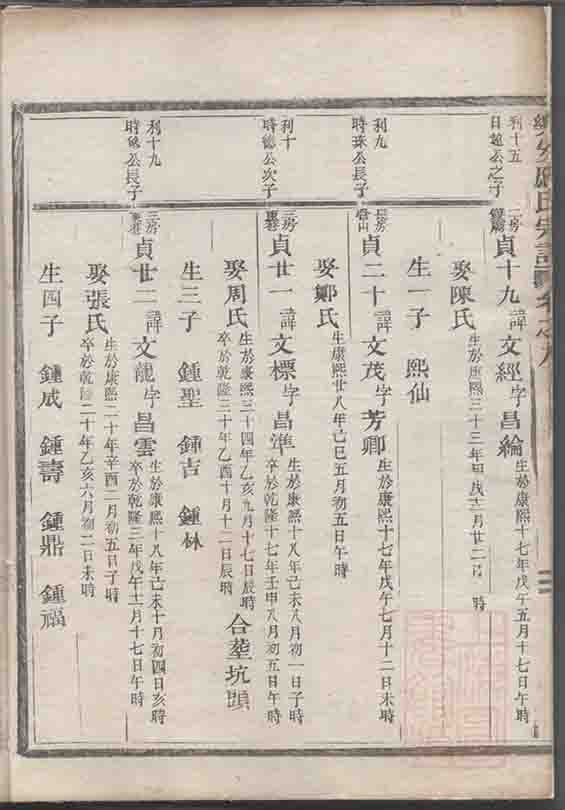 氏宗譜 卷之九
利十五
日 公之子
二房
貞十九 諱文經字昌綸 生於康熙十七年戊午五月十七日午時
娶陳氏 生於康熙三十三年甲戌十二月廿二日 時
生一子 熙仙
利九
時珠公長子
長房
山
貞二十 諱文茂字芳卿 生於康熙十七年戊午七月十二日未時
娶鄭氏 生康熙廿八年己巳五月初五日午時
利十
時德公次子
三房
巷
貞廿一 諱文標字昌準 生於康熙十八年己未八月初一日子時
卒於乾隆十七年壬申八月初五日午時
娶周氏 生於康熙三十四年乙亥九月十七日辰時
卒於乾隆三十年乙酉十月十二日辰時 合塟坑頭
生三子 鍾聖 鍾吉 鍾林
利十九
時 公長子
三房
巷
貞廿二 諱文龍字昌雲 生於康熙十八年己未十月初四日亥時
卒於乾隆三年戊午十一月十七日午時
娶張氏 生於康熙二十年辛酉二月初五日子時
卒於乾隆二十年乙亥六月初二日未時
生四子 鍾成 鍾壽 鍾鼎 鍾福